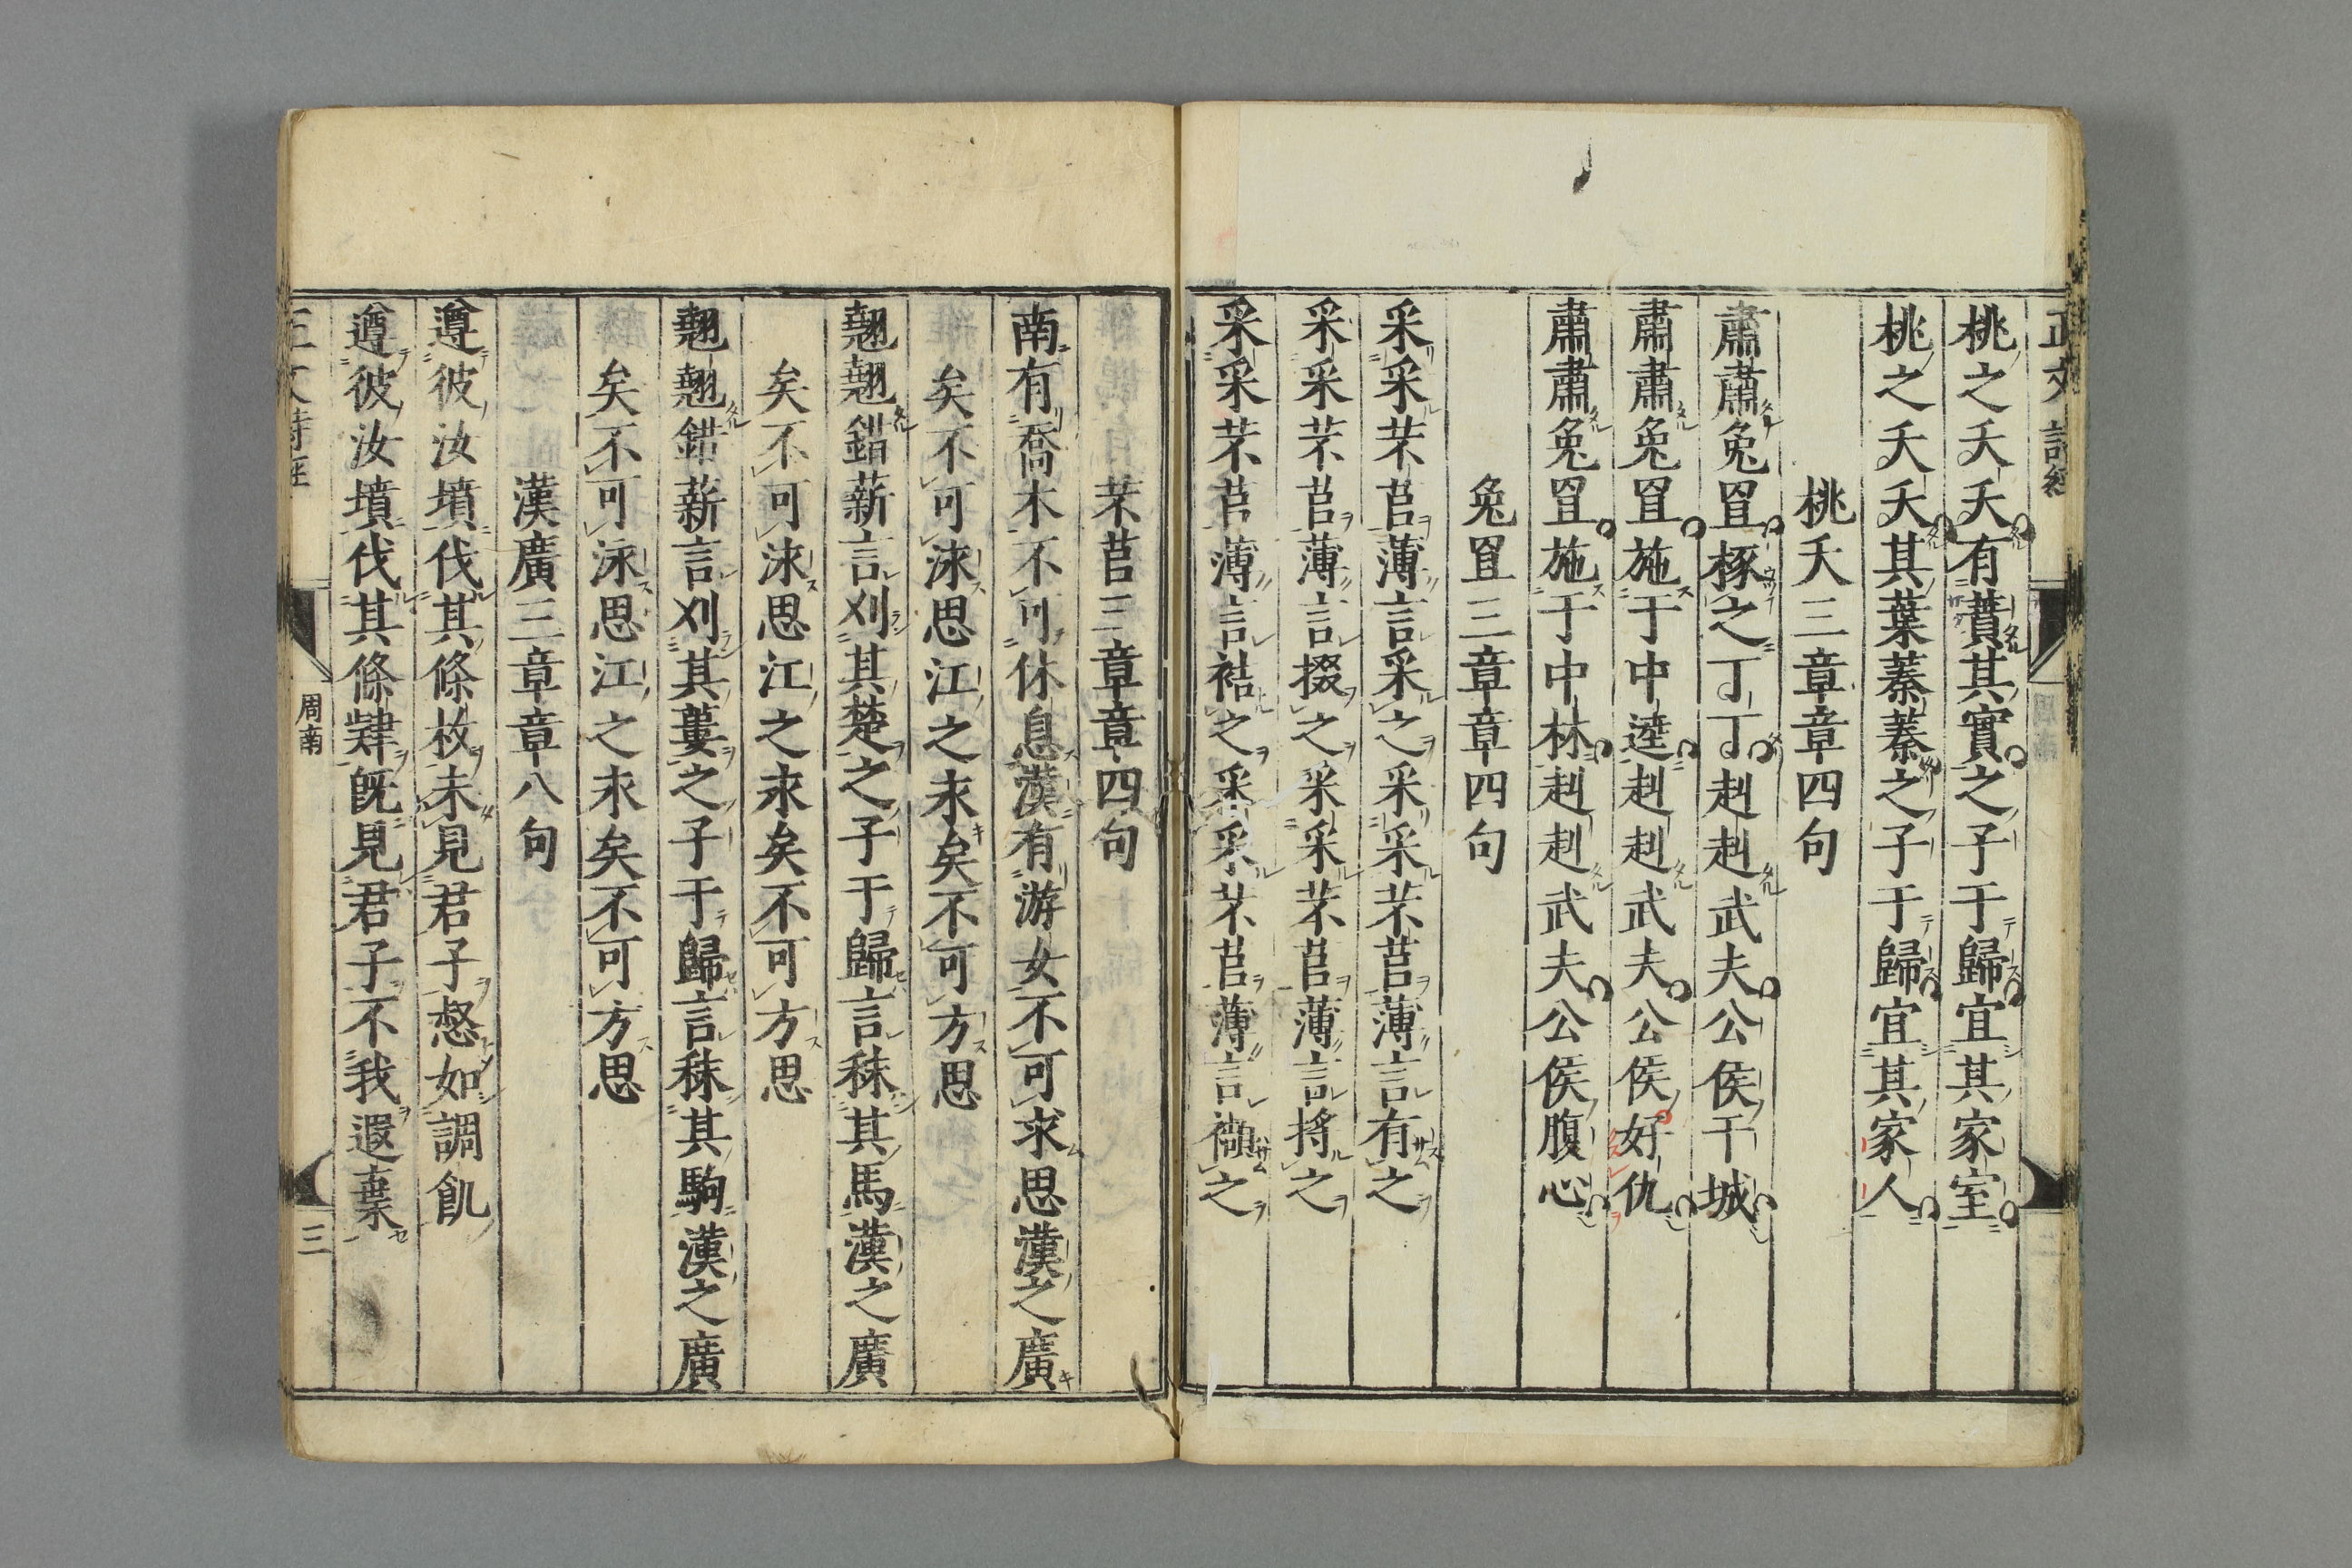 正文詩經
桃之夭夭有蕡其實之子于歸宜其家室
桃之夭夭其葉蓁蓁之子于歸宜其家人
桃夭三章章四句
肅肅兔罝椓之丁丁赳赳武夫公侯干城
肅肅兔罝施于中逵赳赳武夫公侯好仇
肅肅兔罝施于中林赳赳武夫公侯腹心
兔罝三章章四句
采采芣苢薄言采之采采芣苢薄言有之
采采芣苢薄言掇之采采芣苢薄言捋之
采采芣苢薄言袺之采采芣苢薄言襭之
芣苢三章章四句
南有喬木不可休息漢有游女不可求思漢之廣
矣不可泳思江之永矣不可方思
翹翹錯薪言刈其楚之子于歸言秣其馬漢之廣
矣不可泳思江之永矣不可方思
翹翹錯薪言刈其蔞之子于歸言秣其駒漢之廣
矣不可泳思江之永矣不可方思
漢廣三章章八句
遵彼汝墳伐其條枚未見君子惄如調飢
遵彼汝墳伐其條肄既見君子不我遐棄
正文詩經
周南
三